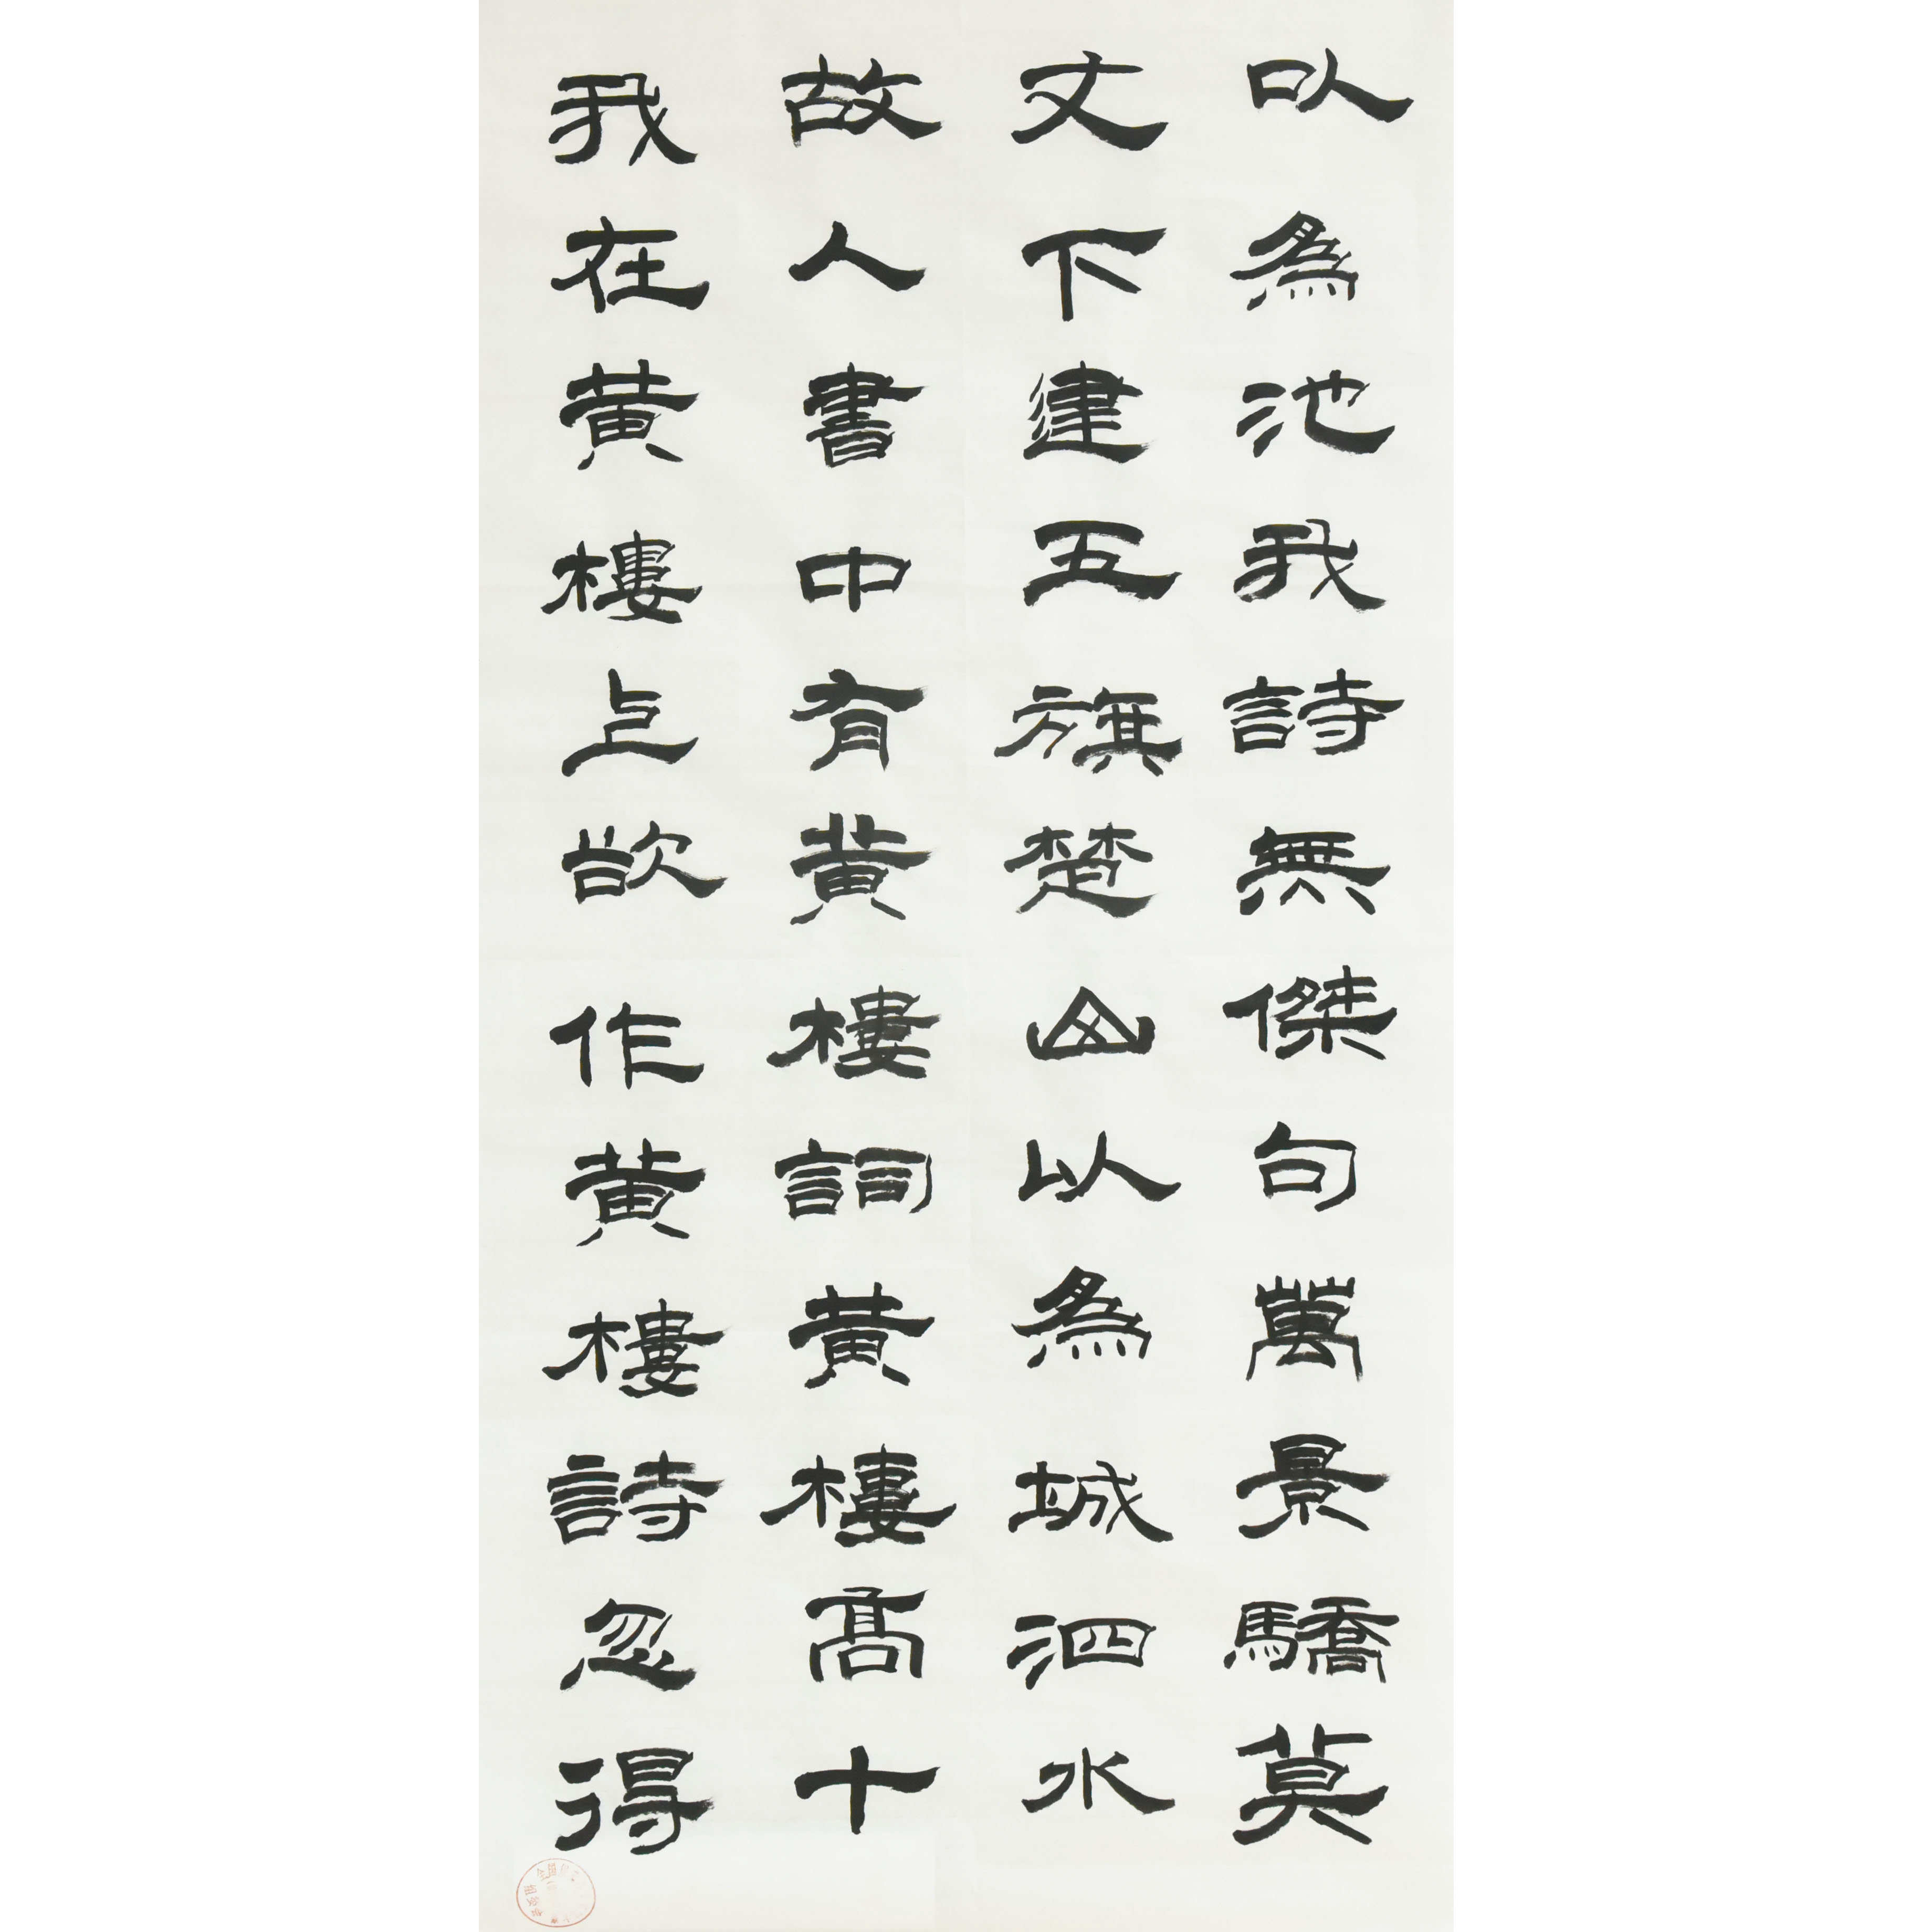 我在黄樓上欲作黄樓詩忽得
故人書中有黄樓詞黄樓高十
丈下建五旗楚山以為城泗水
以為池我詩無傑句萬景驕莫